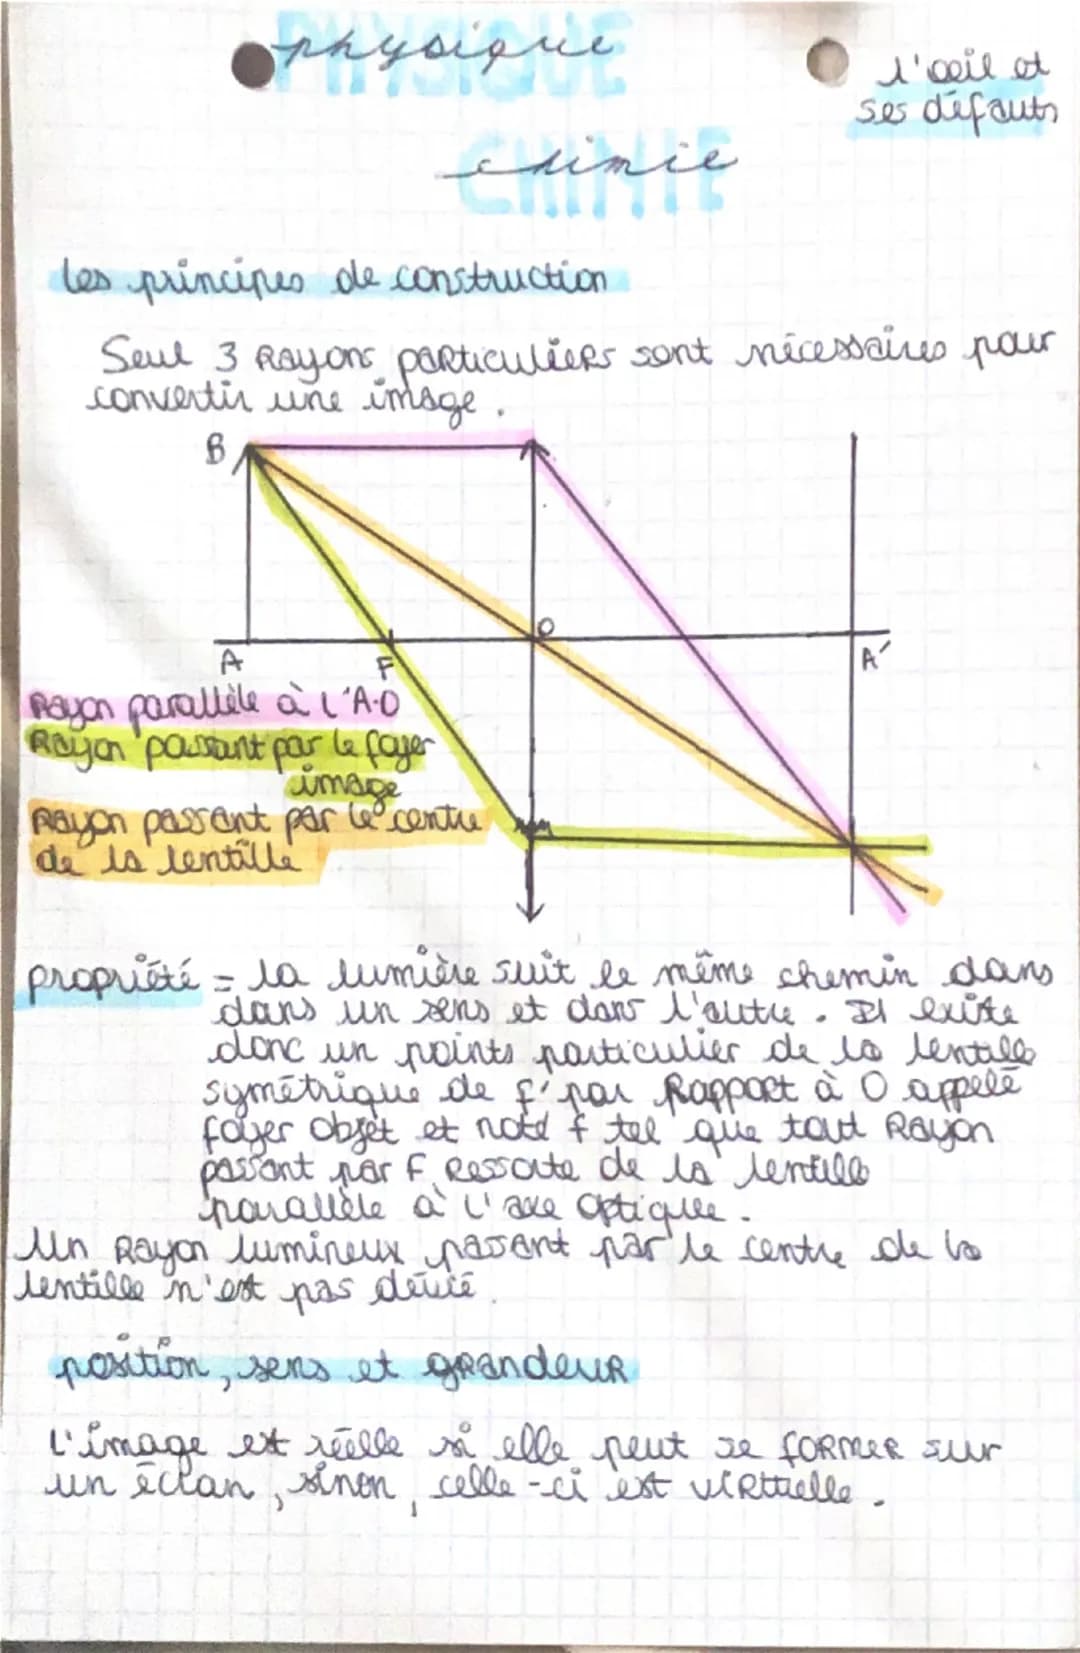 physique
PHYSIQUE
l'œil et
ses défauts
chimie
CHIMIE
les principes de construction
Seul 3 Rayons particuliers sont nécessaires pour
convertir une image.
B
O
A
F
A'
Rayon parallèle à l'A.O
Rayon passant par le foyer
image
Rayon passant par le centre
de la lentille
propriété = la lumière suit le même chemin dans
dans un sens et dans l'autre. Il existe
donc un points particulier de la lentille
symétrique de f' par Rapport à O appelé
foyer objet et noté f tel que tout Rayon
passant par F Ressorte de la lentille
parallèle à l'axe optique.
Un Rayon lumineux passant par le centre de la
lentille n'est pas dévié.
position, sens et grandeur
L'image est réelle si elle peut se former sur
un écran, sinon, celle-ci est virtuelle.